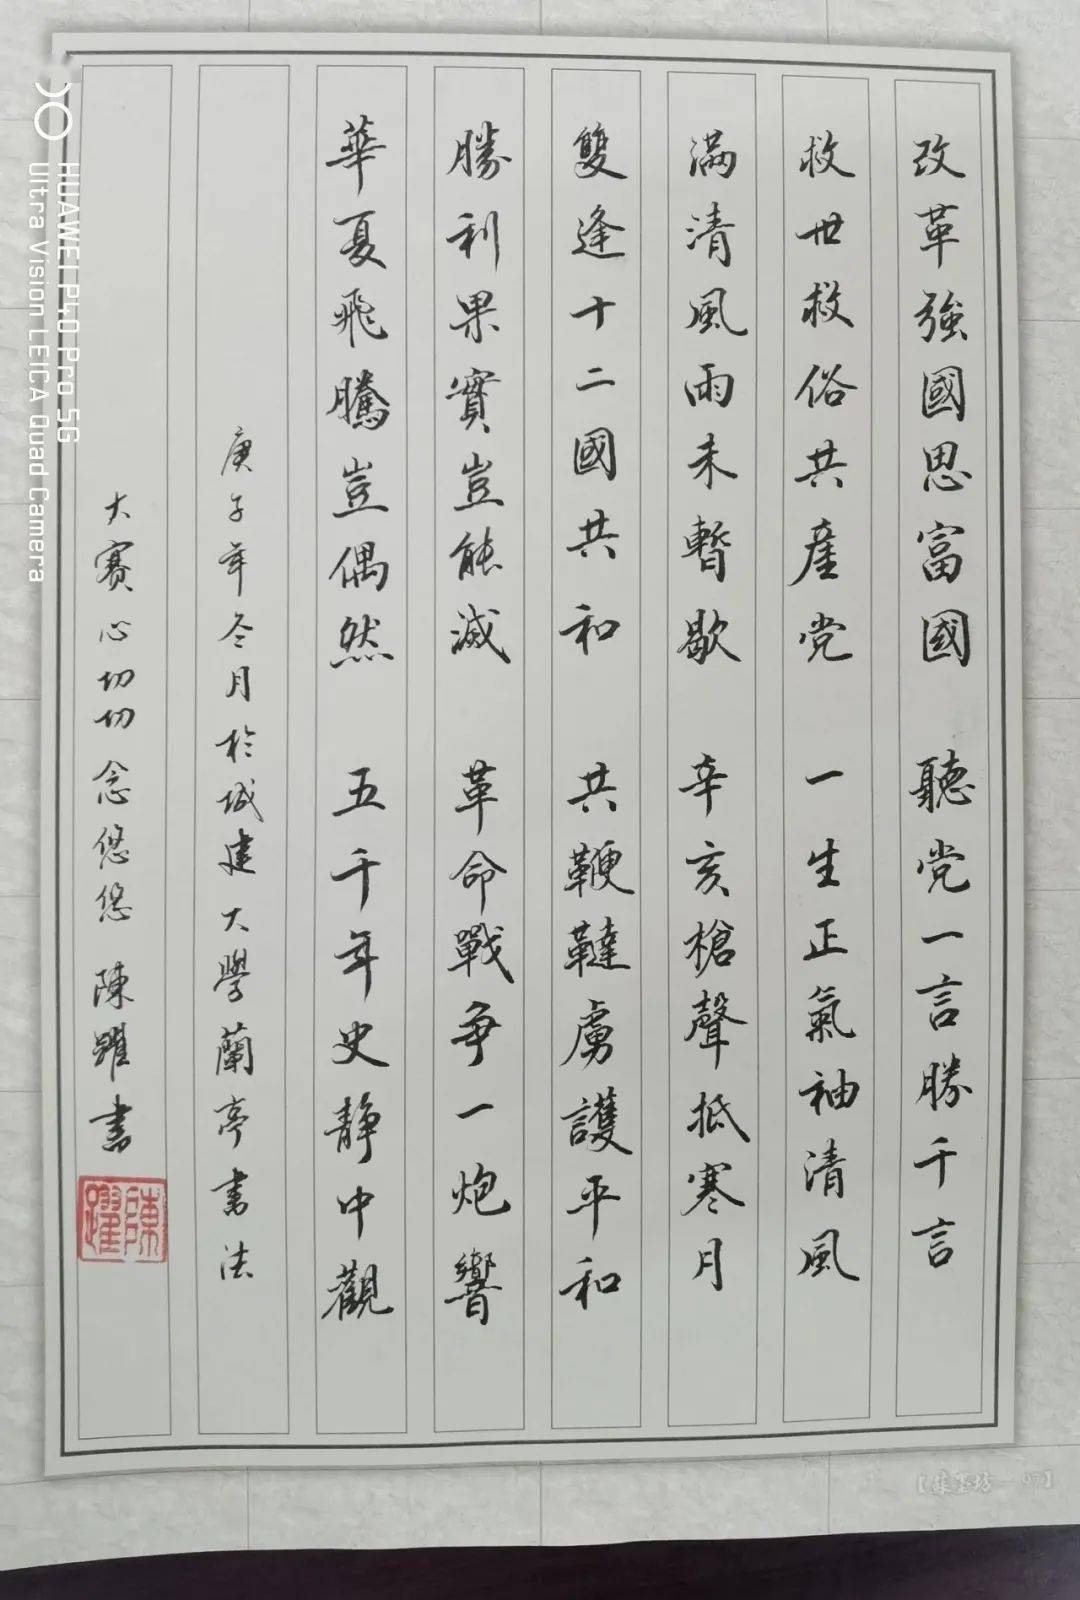 改革強國思富國 聽党一言勝千言
救世救俗共産党 一生正氣袖清風
滿清風雨未暫歇 辛亥槍聲抵寒月
雙逢十二國共和 共鞭韃虜護平和
勝利果實豈能滅 革命戰争一炮響
華夏飛騰豈偶然 五千年史静中觀
庚子年冬月於城建大學蘭亭書法
大赛心切切念悠悠 陳躍書
陳躍
HUAWEI P40 Pro 5G
Ultra Vision LEICA Quad Camera